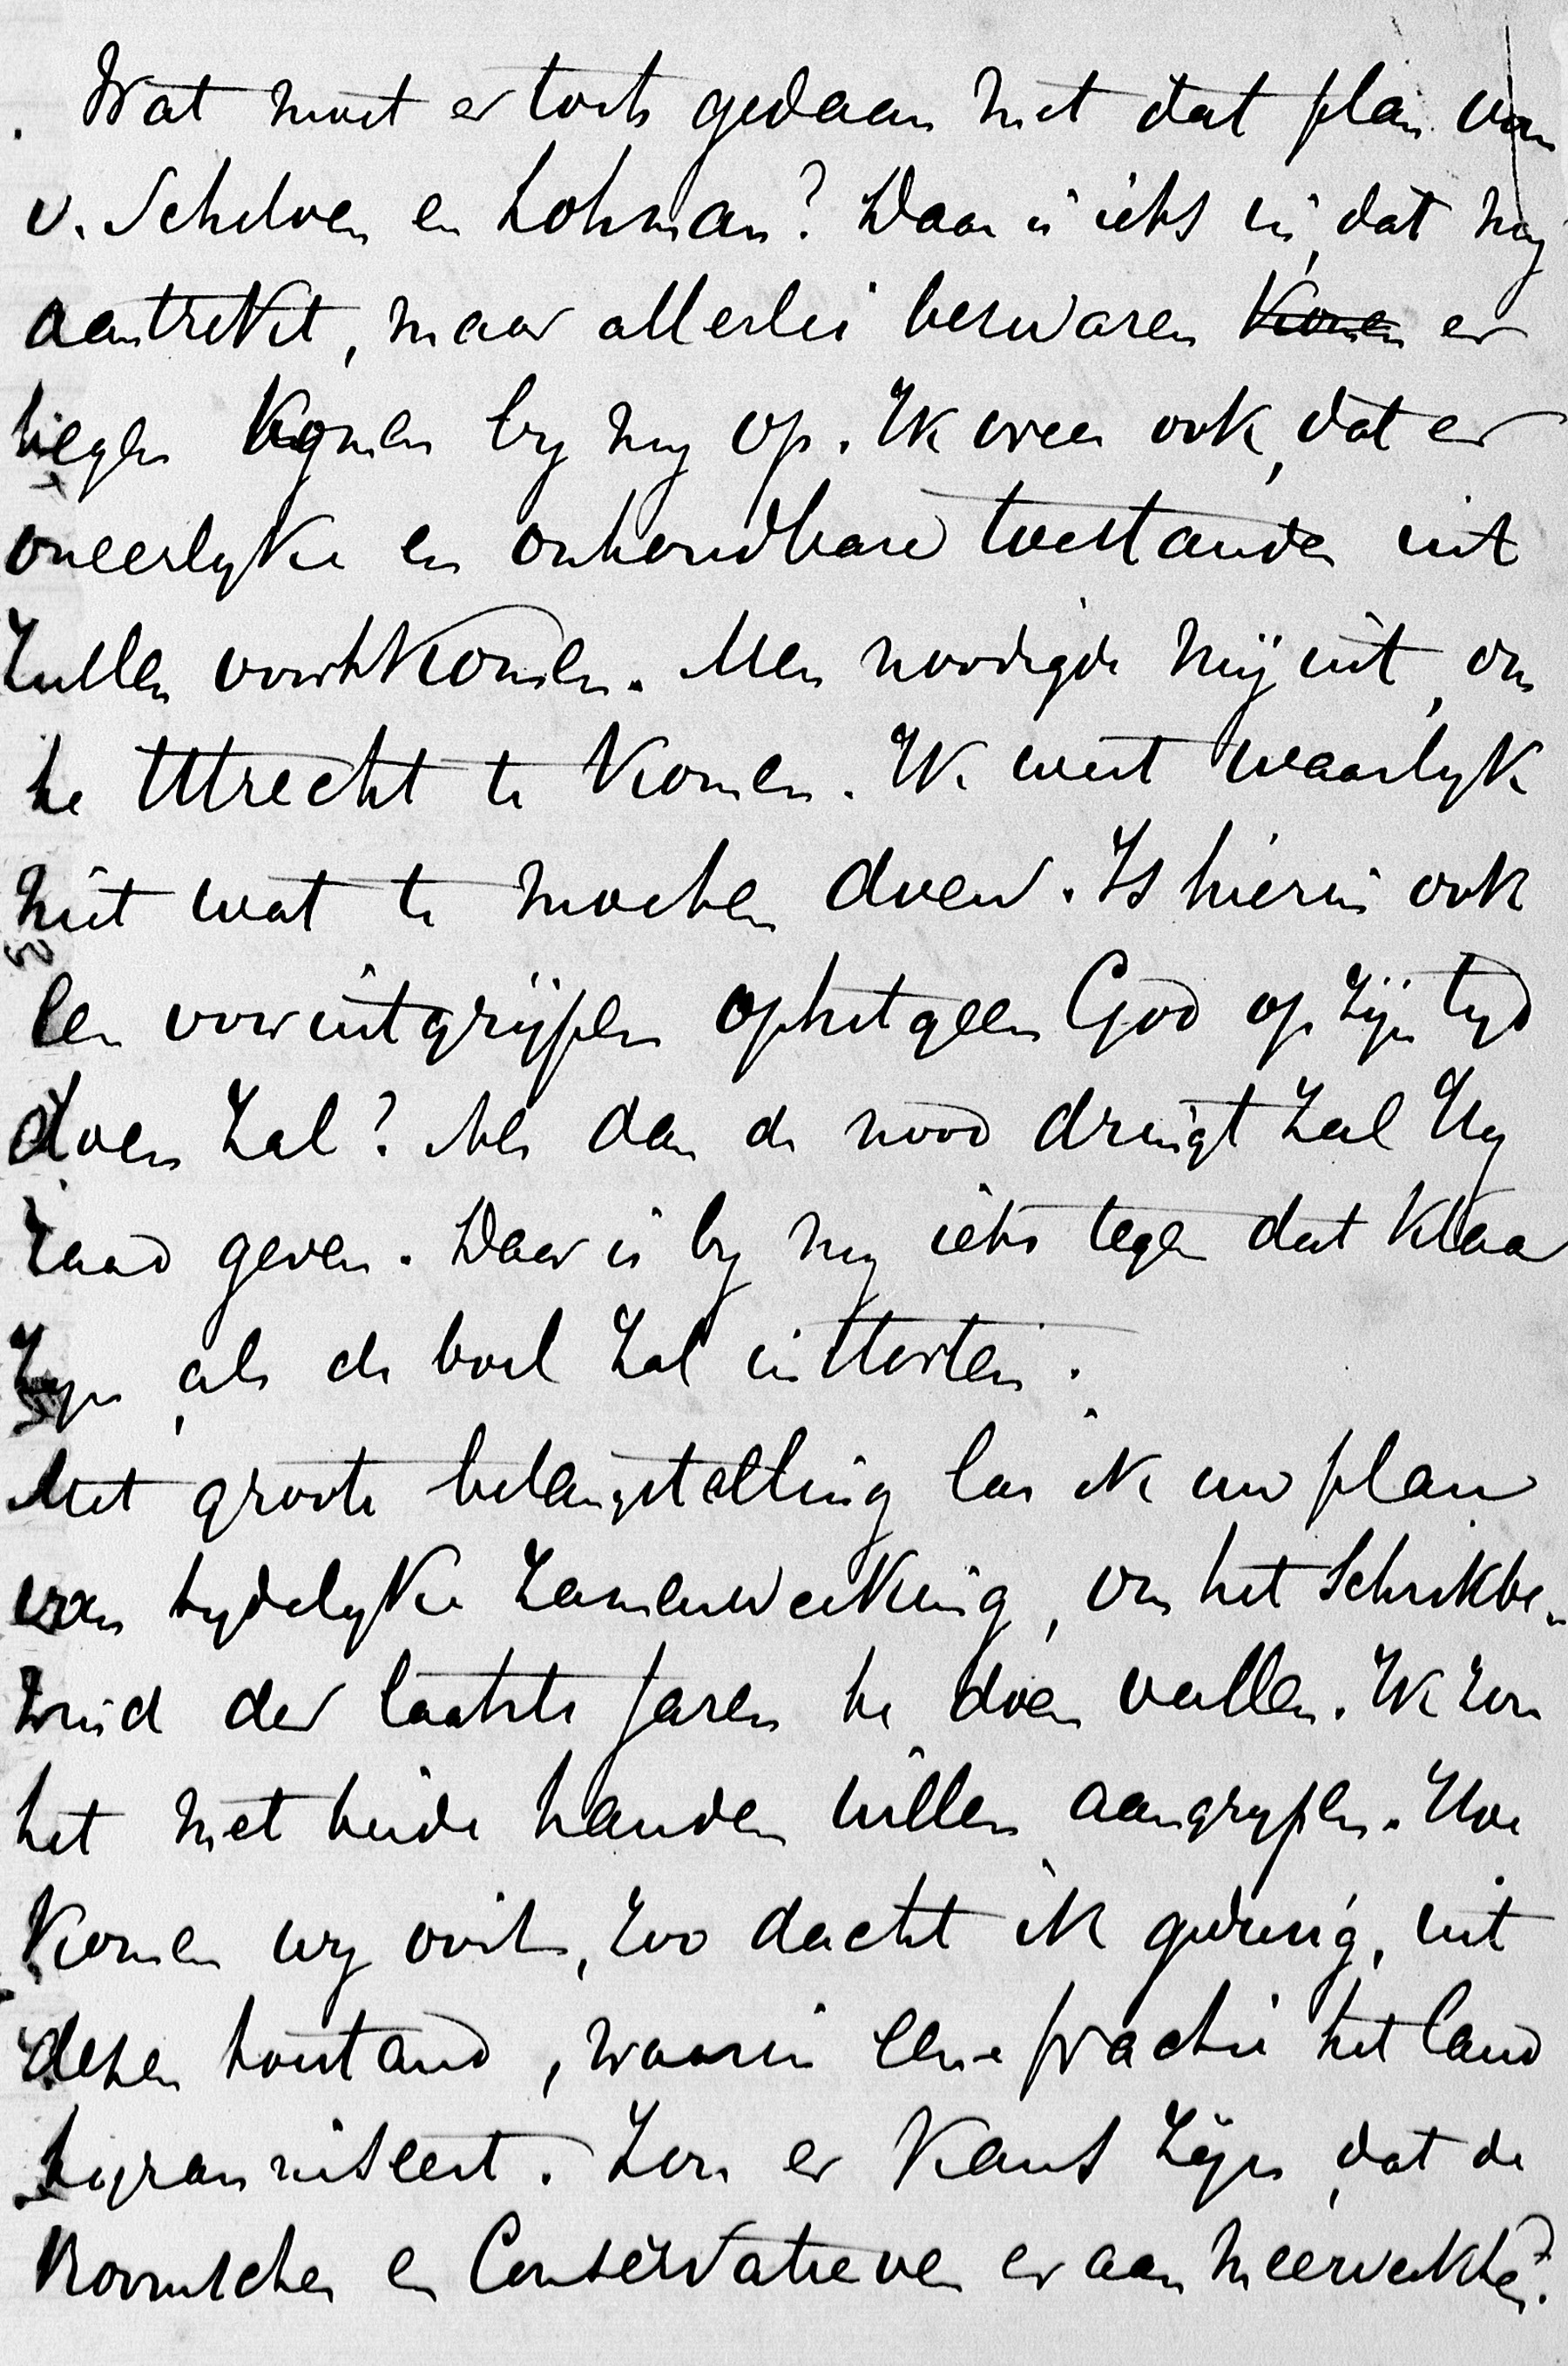 Wat moet er toch gedaan met dat plan van
v. Schelven en Lohman? Daar is iets in, dat my
aantrekt, maar allerlei bezwaren komen er
tegen komen by my op. Ik vrees ook, dat er
oneerlyke en onhoudbare toestanden uit
zullen voortkomen. Men noodigde mij uit, om
te Utrecht te komen. Ik weet waarlyk
niet wat te moeten doen. Is hierin ook
een vooruitgrijpen op hetgeen God op zijn tyd
doen zal? Als dan de nood dringt zal Hy
raad geven. Daar is by my iets tegen dat klaar
zyn, als de boel zal instorten.
Met groote belangstelling las ik uw plan
van tydelyke zamenwerking, om het Schrikbe-
wind der laatste jaren te doen vallen. Ik zou
het met beide handen willen aangrypen. Hoe
komen wy ooit, zoo dacht ik gedurig, uit
dezen toestand, waarin eene fractie het land
tyranniseert. Zou er kans zijn, dat de
Roomschen en Conservatieven er aan meewerkten?